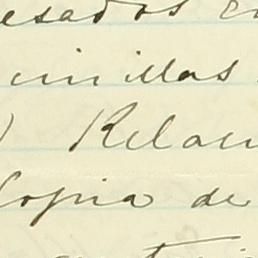 esados e
inillas
) Relac
Copia de